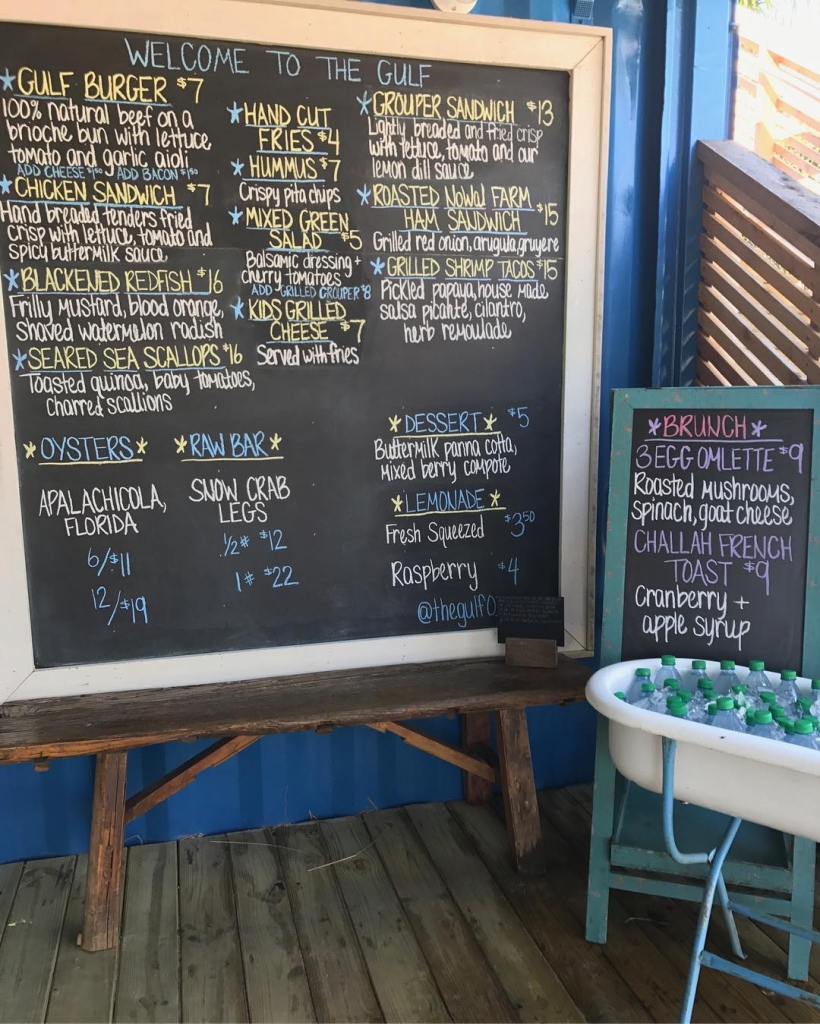 WELCOME TO THE GULF
GULF BURGER $7
100% natural beef on a
brioche bun with lettuce,
tomato and garlic aioli
ADD CHEESE $1.50 ADD BACON $1.50
CHICKEN SANDWICH $7
Hand breaded tenders fried
crisp with lettuce, tomato and
spicy buttermilk sauce
BLACKENED REDFISH $16
Frilly mustard, blood orange,
shaved watermelon radish
SEARED SEA SCALLOPS $16
Toasted quinoa, baby tomatoes,
charred scallions
HAND CUT
FRIES $4
HUMMUS $7
Crispy pita chips
MIXED GREEN
SALAD $5
Balsamic dressing +
cherry tomatoes
ADD GRILLED GROUPER $8
KIDS GRILLED
CHEESE $7
Served with fries
GROUPER SANDWICH $13
Lightly breaded and fried crisp
with lettuce, tomato and our
lemon dill sauce
ROASTED NOWAL FARM
HAM SANDWICH $15
Grilled red onion, arugula, gruyere
GRILLED SHRIMP TACOS $15
Pickled papaya, house made
salsa picante, cilantro,
herb remoulade
OYSTERS
APALACHICOLA,
FLORIDA
6/$11
12/$19
RAW BAR
SNOW CRAB
LEGS
1/2# $12
1# $22
DESSERT $5
Buttermilk panna cotta,
mixed berry compote
LEMONADE
Fresh Squeezed $3.50
Raspberry $4
@thegulfo
BRUNCH
3 EGG OMLETTE $9
Roasted mushrooms,
spinach, goat cheese
CHALLAH FRENCH
TOAST $9
Cranberry +
apple syrup